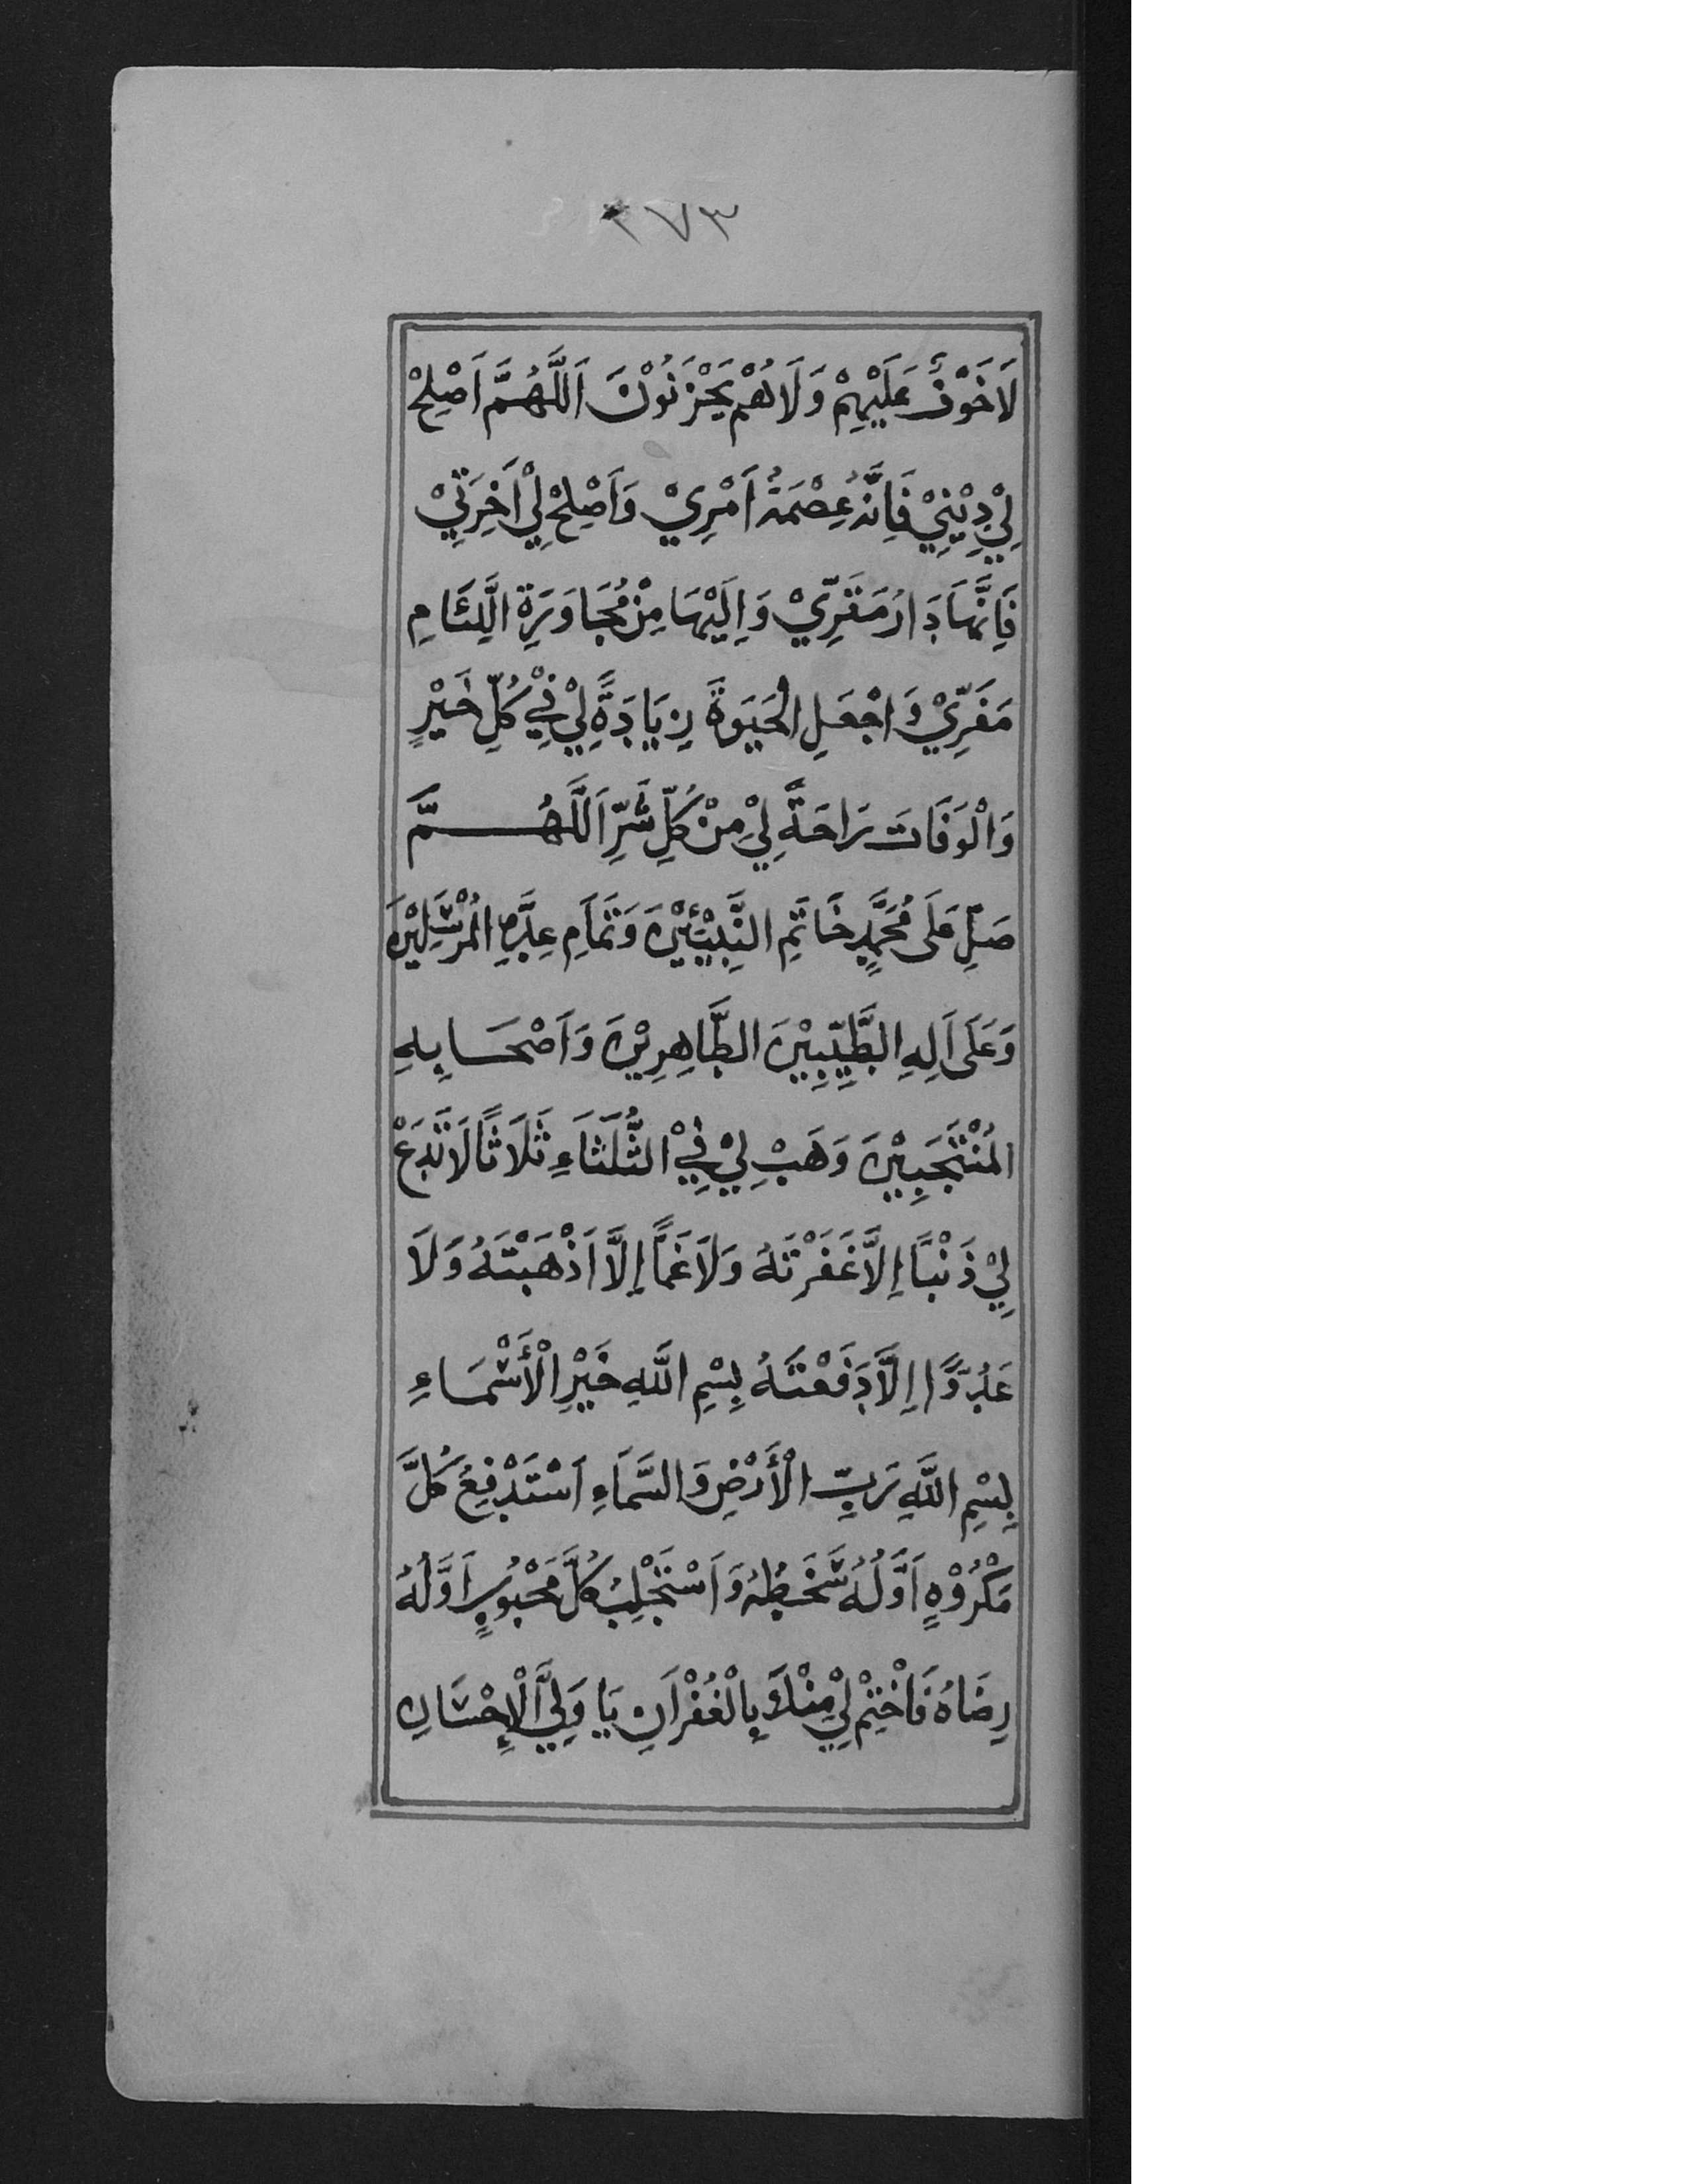 ٣٧٣
لَاخَوْفٌ عَلَيْهِمْ وَلَاهُمْ يَحْزَنُوْنَ اَللَّهُمَّ اَصْلِحْ
لِيْ دِيْنِيْ فَاِنَّهُ عِصْمَةُ اَمْرِيْ وَاَصْلِحْ لِيْ اَخِرَتِيْ
فَاِنَّهَا دَارُ مَقَرِّيْ وَاِلَيْهَا مِنْ مُجَاوَرَةِ اللِّئَامِ
مَفَرِّيْ وَاجْعَلِ الْحَيَوةَ زِيَادَةً لِيْ فِيْ كُلِّ خَيْرٍ
وَالْوَفَاتَ رَاحَةً لِيْ مِنْ كُلِّ شَرٍّ اَللَّهُمَّ
صَلِّ عَلَى مُحَمَّدٍ خَاتَمِ النَّبِيِّيْنَ وَتَمَامِ عِدَّةِ الْمُرْسَلِيْنَ
وَعَلَى اَلِهِ الطَّيِّبِيْنَ الطَّاهِرِيْنَ وَاَصْحَابِهِ
الْمُنْتَجَبِيْنَ وَهَبْ لِيْ فِيْ الثُّلَثَاءِ ثَلَاثًا لَا تَدَعْ
لِيْ ذَنْبًا اِلَّا غَفَرْتَهُ وَلَا غَمًّا اِلَّا اَذْهَبْتَهُ وَلَا
عَدُوًّا اِلَّا دَفَعْتَهُ بِسْمِ اللَّهِ خَيْرِ الْأَسْمَاءِ
بِسْمِ اللَّهِ رَبِّ الْأَرْضِ وَالسَّمَاءِ اَسْتَدْفِعُ كُلَّ
مَكْرُوْهٍ اَوَّلُهُ سَخَطُهُ وَاَسْتَجْلِبُ كُلَّ مَحْبُوْبٍ اَوَّلُهُ
رِضَاهُ فَاخْتِمْ لِيْ مِنْكَ بِالْغُفْرَانِ يَا وَلِيَّ الْاِحْسَانِ